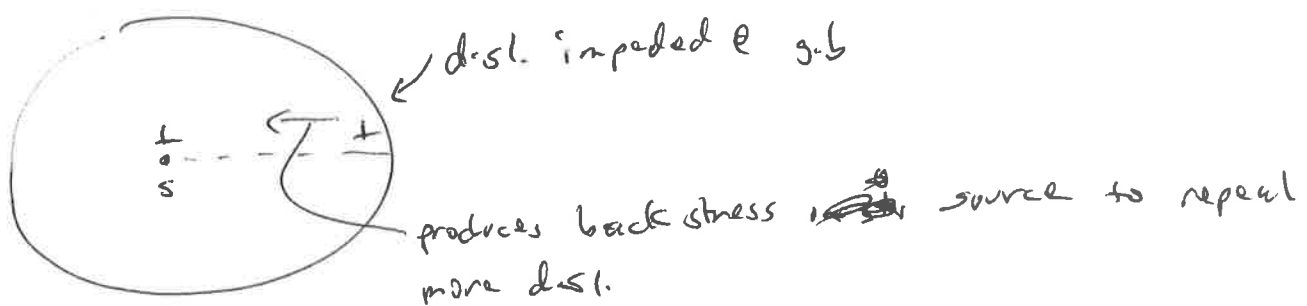 disl. impeded @ g.b
⊥
⊥
S
produces back stress source to repeal
more disl.